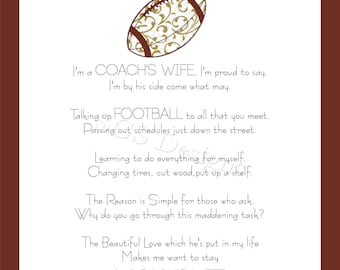 I'm a COACH'S WIFE, I'm proud to say.
I'm by his side come what may.
Talking up FOOTBALL to all that you meet.
Passing out schedules just down the street.
Learning to do everything for myself.
Changing tires, cut wood, put up a shelf.
The Reason is Simple for those who ask.
Why do you go through this maddening task?
The Beautiful Love which he's put in my life
Makes me want to stay